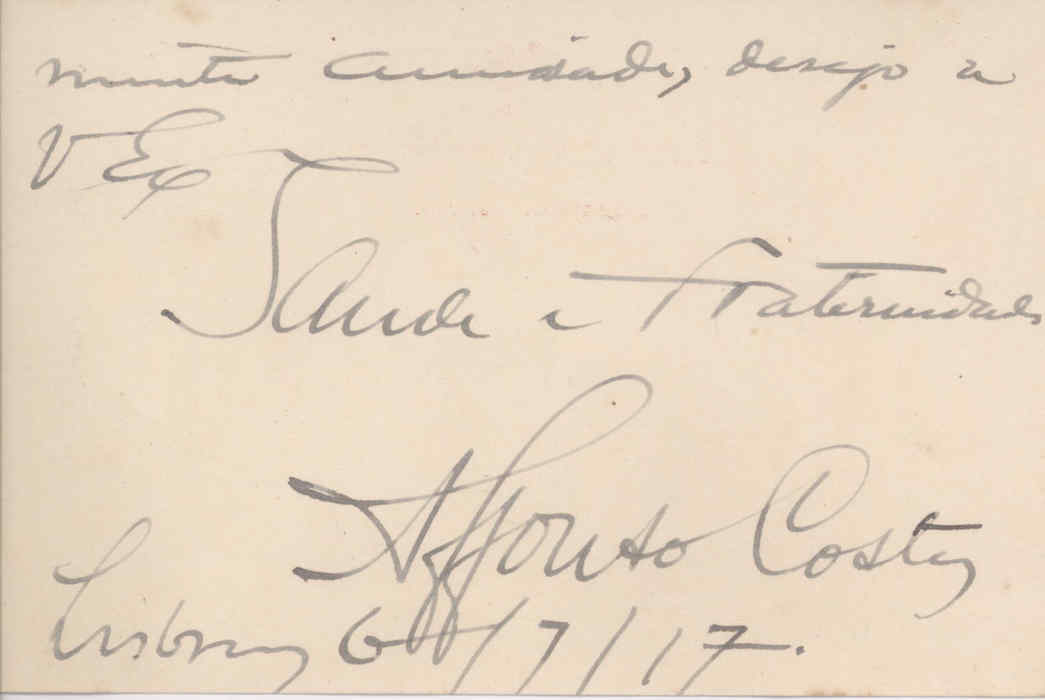 muita amizade, desejo a
V Exª
Saude e Fraternidade
Affonso Costa
Lisboa, 6/7/17.